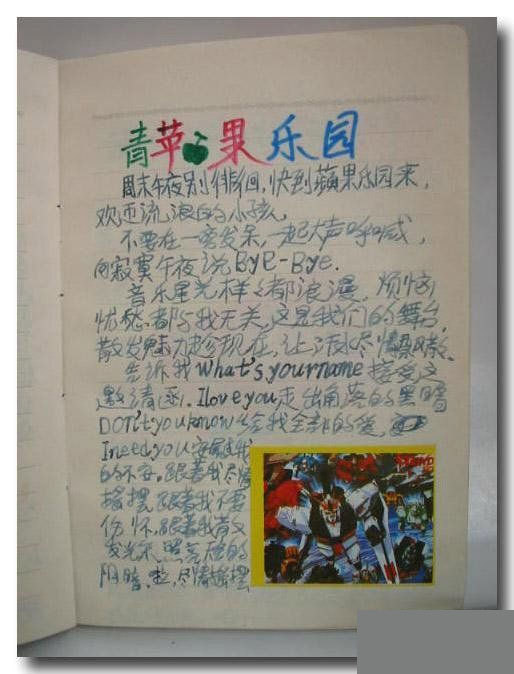 青苹果乐园
周末午夜别徘徊,快到蘋果乐园来,
欢迎流浪的小孩,
不要在一旁发呆,一起大声呼喊,
向寂寞午夜说Bye-Bye.
音乐星光样々都浪漫,烦恼
忧愁都与我无关,这是我们的舞台,
散发魅力趁现在,让汗水尽情飘散.
告诉我what's your name接受这
邀请函.I love you走出角落的黑暗
DON't you know给我全部的爱,
I need you安慰我
的不安.跟着我尽情
摇摆 跟着我不要
伤怀.跟着我散
发光 照亮
阴暗.啦,尽情摇摆